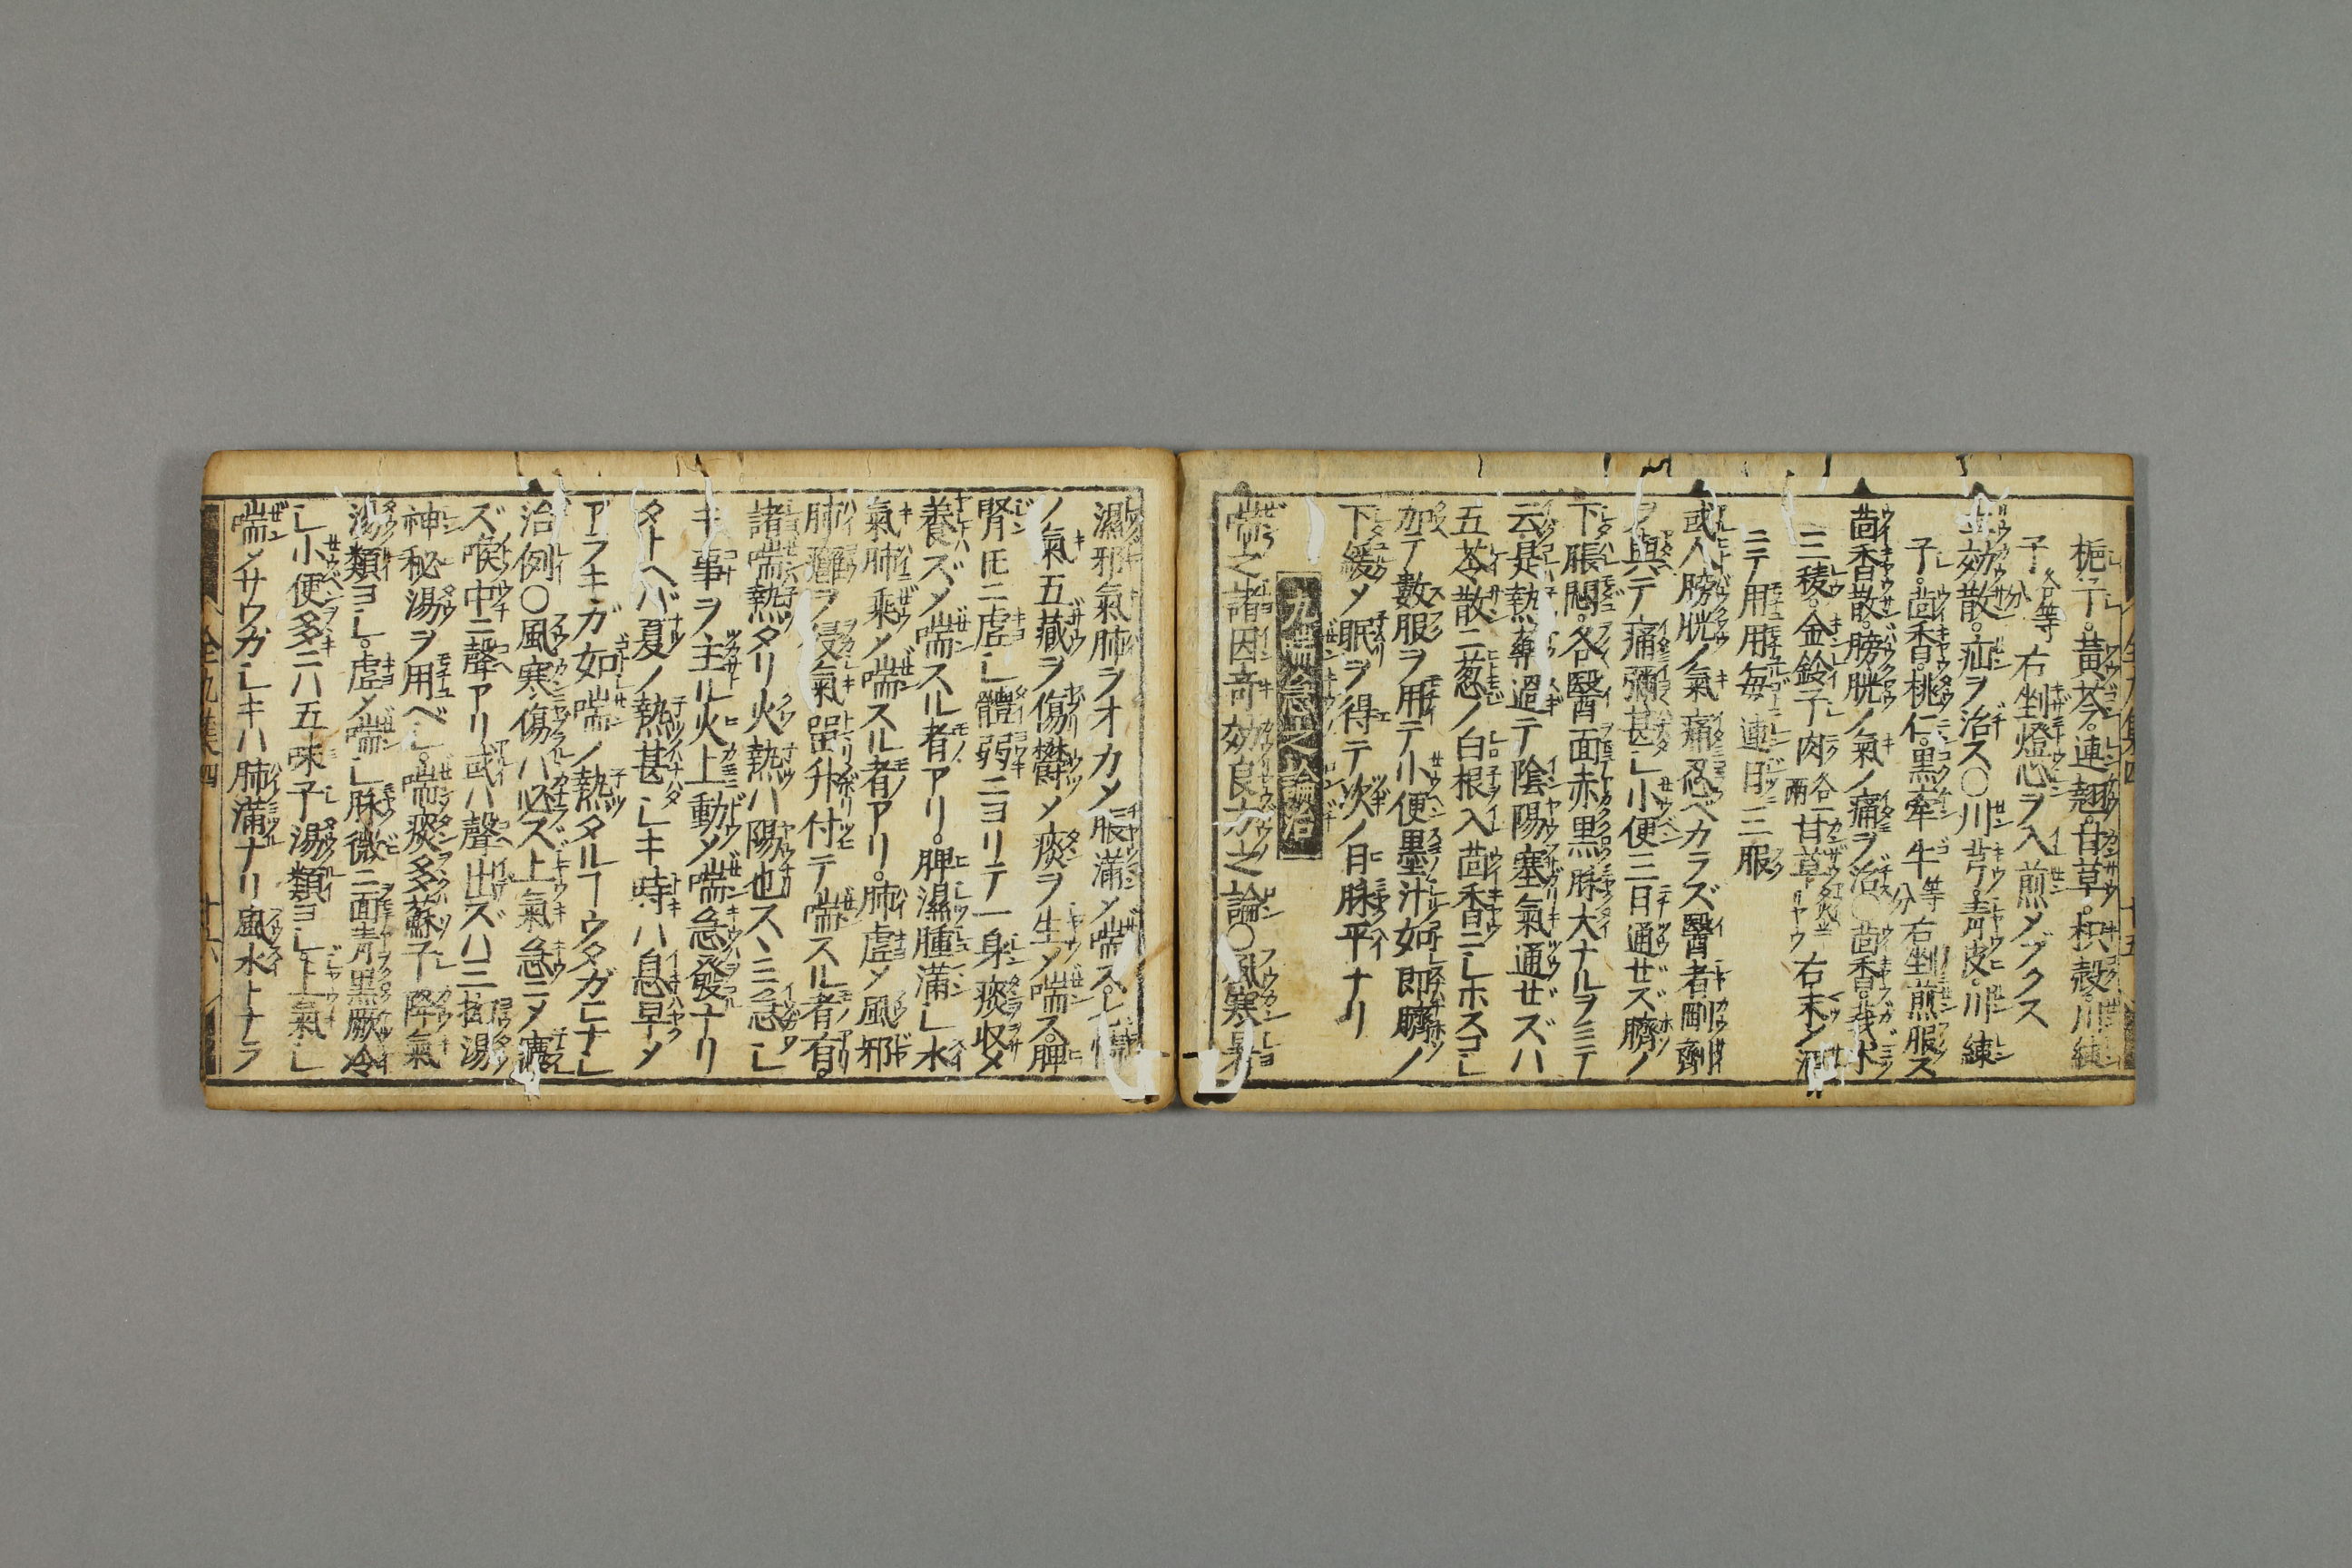 梔子。黃芩。連翹。甘草。枳殼。川練
子各等分右剉燈心ヲ入煎〆ブクス
立効散。疝ヲ治ス〇川芎。靑皮。川練
子。茴香。桃仁。黒牽牛等分右剉煎服ス
茴香散。膀胱ノ氣ノ痛ヲ治〇茴香。莪朮
三稜。金鈴子肉各一兩甘草右末〆酒
ニテ用用毎 連日三服
或人膀胱ノ氣痛忍ベカラズ醫者剛劑
ヲ與テ痛彌甚シ小便三日通ゼズ臍ノ
下脹悶。各醫面赤黒脉大ナルヲミテ
云是熱藥過テ陰陽塞氣通ゼズハ
五苓散ニ葱ノ白根入茴香ニシホスコシ
加テ數服ヲ用テ小便墨汁如即臍ノ
下緩〆眠ヲ得テ次ノ日脉平ナリ
九喘急之論治
喘之諸因竒効良方之論〇風寒暑
濕邪氣肺ヲオカ〆脹滿〆喘ス。七情
ノ氣五藏ヲ傷欝〆痰ヲ生〆喘ス。脾
腎疋ニ虚シ體弱ニヨリテ一身痰収〆
養ズ〆喘スル者アリ。脾濕腫滿シ水
氣肺乘〆喘スル者アリ。肺虚〆風邪
肺癰ヲ侵氣畱升付テ喘スル者有。
諸喘熱タリ火熱ハ陽也ス丶ミ急シ
キ事ヲ主ル火上動〆喘急發ナリ
タトヘバ夏ノ熱甚シキ時ハ息早〆
アフキガ如喘ノ熱タルヿウタガヒナシ
治例〇風寒傷ハ必ズ上氣急ニ〆
ズ喉中ニ聲アリ或ハ聲出ズハ三拗湯
神秘湯ヲ用ベシ。喘痰多蘇子降氣
湯類ヨシ。虚〆喘シ脉微ニ面靑黒厥冷
シ小便多ニハ五味子湯類ヨシ上氣シ
喘〆サウガシキハ肺滿ナリ風水トナラ
全九集四
廿六